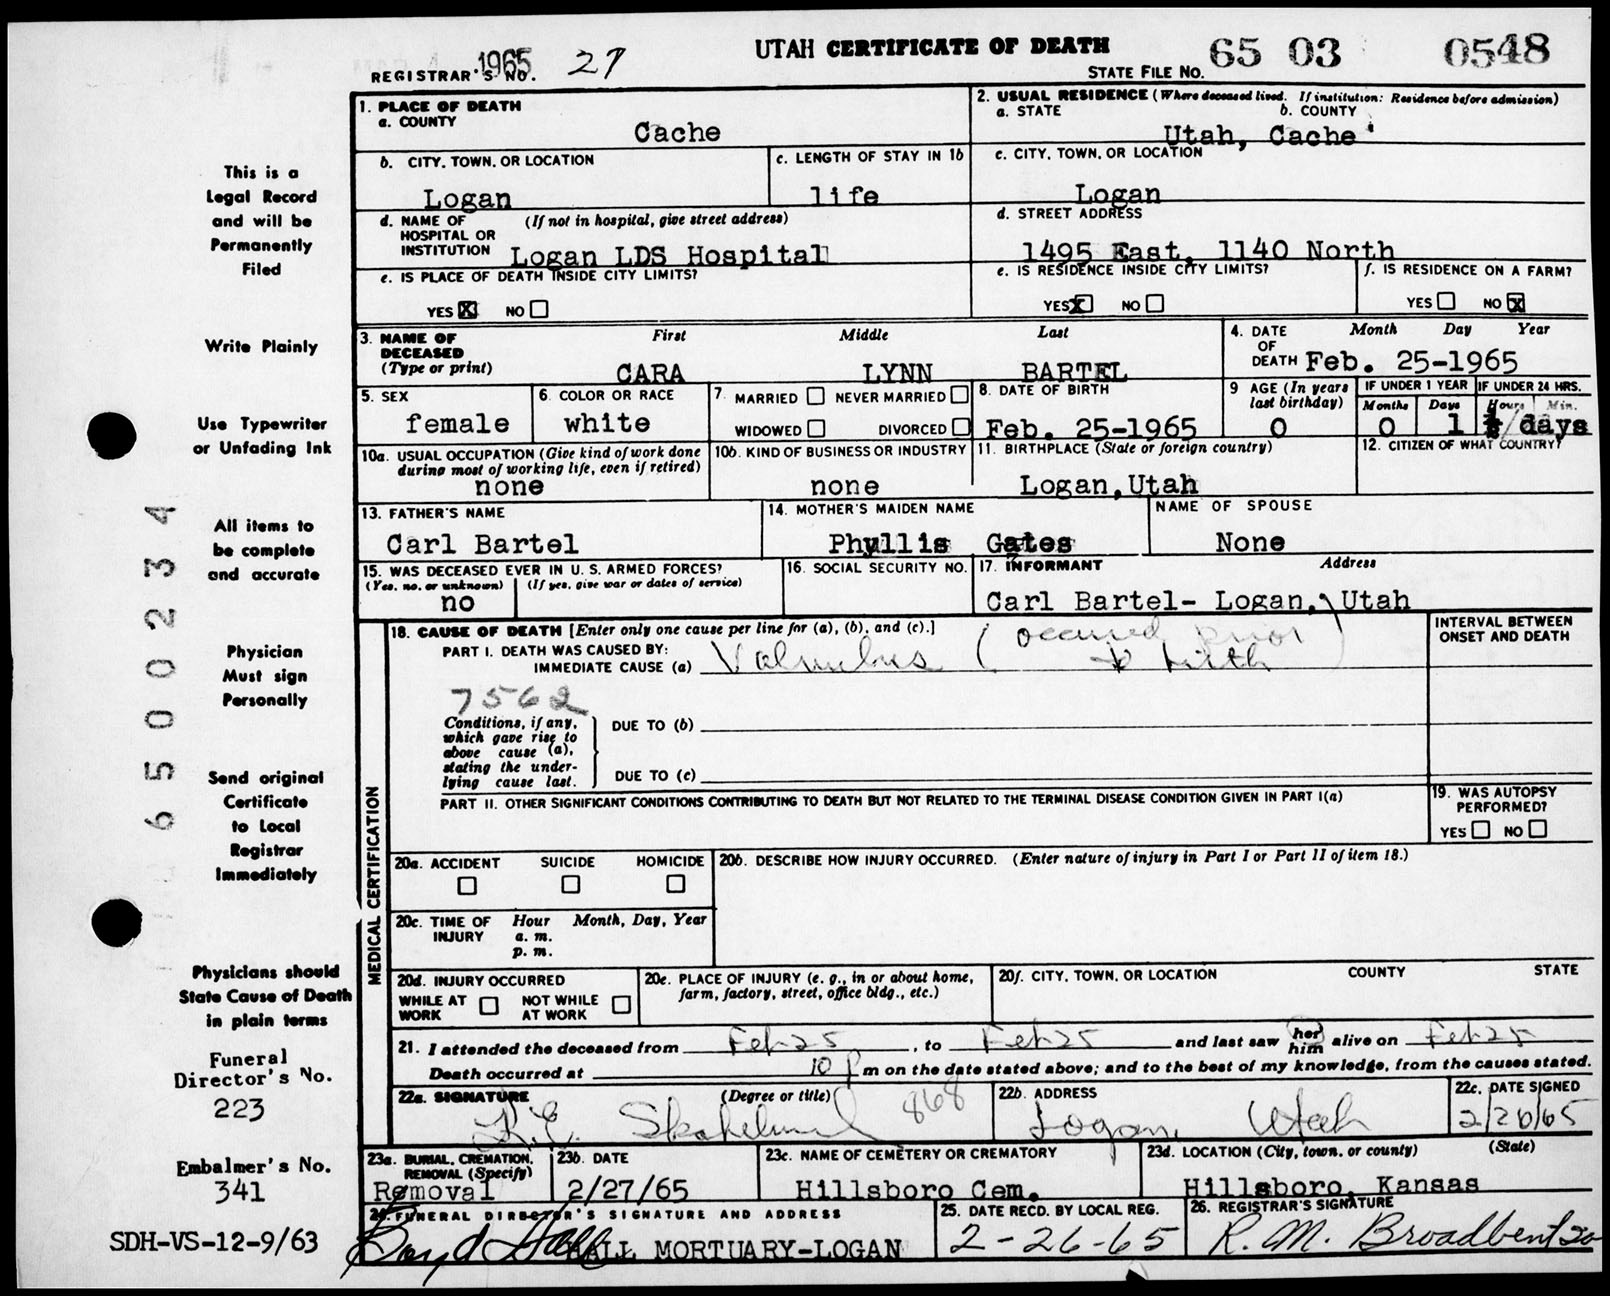 UTAH CERTIFICATE OF DEATH
65 03 0548
REGISTRAR'S NO. 1965 27
STATE FILE NO.
1. PLACE OF DEATH
a. COUNTY
Cache
2. USUAL RESIDENCE (Where deceased lived. If institution: Residence before admission)
a. STATE b. COUNTY
Utah, Cache
b. CITY, TOWN, OR LOCATION
Logan
c. LENGTH OF STAY IN 1b
life
c. CITY, TOWN, OR LOCATION
Logan
d. NAME OF (If not in hospital, give street address)
HOSPITAL OR
INSTITUTION Logan LDS Hospital
d. STREET ADDRESS
1495 East, 1140 North
e. IS PLACE OF DEATH INSIDE CITY LIMITS?
YES X NO
e. IS RESIDENCE INSIDE CITY LIMITS?
YES X NO
f. IS RESIDENCE ON A FARM?
YES NO X
3. NAME OF First Middle Last
DECEASED
(Type or print) CARA LYNN BARTEL
4. DATE Month Day Year
OF
DEATH Feb. 25-1965
5. SEX
female
6. COLOR OR RACE
white
7. MARRIED NEVER MARRIED
WIDOWED DIVORCED
8. DATE OF BIRTH
Feb. 25-1965
9 AGE (In years
last birthday)
0
IF UNDER 1 YEAR IF UNDER 24 HRS.
Months Days Hours Min.
0 1 days
10a. USUAL OCCUPATION (Give kind of work done
during most of working life, even if retired)
none
10b. KIND OF BUSINESS OR INDUSTRY
none
11. BIRTHPLACE (State or foreign country)
Logan, Utah
12. CITIZEN OF WHAT COUNTRY?
13. FATHER'S NAME
Carl Bartel
14. MOTHER'S MAIDEN NAME
Phyllis Gates
NAME OF SPOUSE
None
15. WAS DECEASED EVER IN U. S. ARMED FORCES?
(Yes, no, or unknown) (If yes, give war or dates of service)
no
16. SOCIAL SECURITY NO.
17. INFORMANT Address
Carl Bartel- Logan, Utah
MEDICAL CERTIFICATION
18. CAUSE OF DEATH [Enter only one cause per line for (a), (b), and (c).]
PART I. DEATH WAS CAUSED BY:
IMMEDIATE CAUSE (a) Volvulus (occurred prior
to birth)
7562
Conditions, if any,
which gave rise to
above cause (a),
stating the under-
lying cause last.
DUE TO (b)
DUE TO (c)
INTERVAL BETWEEN
ONSET AND DEATH
PART II. OTHER SIGNIFICANT CONDITIONS CONTRIBUTING TO DEATH BUT NOT RELATED TO THE TERMINAL DISEASE CONDITION GIVEN IN PART I(a)
19. WAS AUTOPSY
PERFORMED?
YES NO
20a. ACCIDENT SUICIDE HOMICIDE
20b. DESCRIBE HOW INJURY OCCURRED. (Enter nature of injury in Part I or Part II of item 18.)
20c. TIME OF Hour Month, Day, Year
INJURY a. m.
p. m.
20d. INJURY OCCURRED
WHILE AT NOT WHILE
WORK AT WORK
20e. PLACE OF INJURY (e. g., in or about home,
farm, factory, street, office bldg., etc.)
20f. CITY, TOWN, OR LOCATION COUNTY STATE
21. I attended the deceased from Feb 25, to Feb 25 and last saw her him alive on Feb 25
Death occurred at 10 p m on the date stated above; and to the best of my knowledge, from the causes stated.
22a. SIGNATURE (Degree or title) 868
22b. ADDRESS
Logan, Utah
22c. DATE SIGNED
2/26/65
23a. BURIAL, CREMATION,
REMOVAL (Specify)
Removal
23b. DATE
2/27/65
23c. NAME OF CEMETERY OR CREMATORY
Hillsboro Cem.
23d. LOCATION (City, town, or county) (State)
Hillsboro, Kansas
24. FUNERAL DIRECTOR'S SIGNATURE AND ADDRESS
Boyd Hall HALL MORTUARY-LOGAN
25. DATE RECD. BY LOCAL REG.
2-26-65
26. REGISTRAR'S SIGNATURE
R. M. Broadbent
This is a
Legal Record
and will be
Permanently
Filed
Write Plainly
Use Typewriter
or Unfading Ink
All items to
be complete
and accurate
Physician
Must sign
Personally
Send original
Certificate
to Local
Registrar
Immediately
Physicians should
State Cause of Death
in plain terms
Funeral
Director's No.
223
Embalmer's No.
341
SDH-VS-12-9/63
6500234